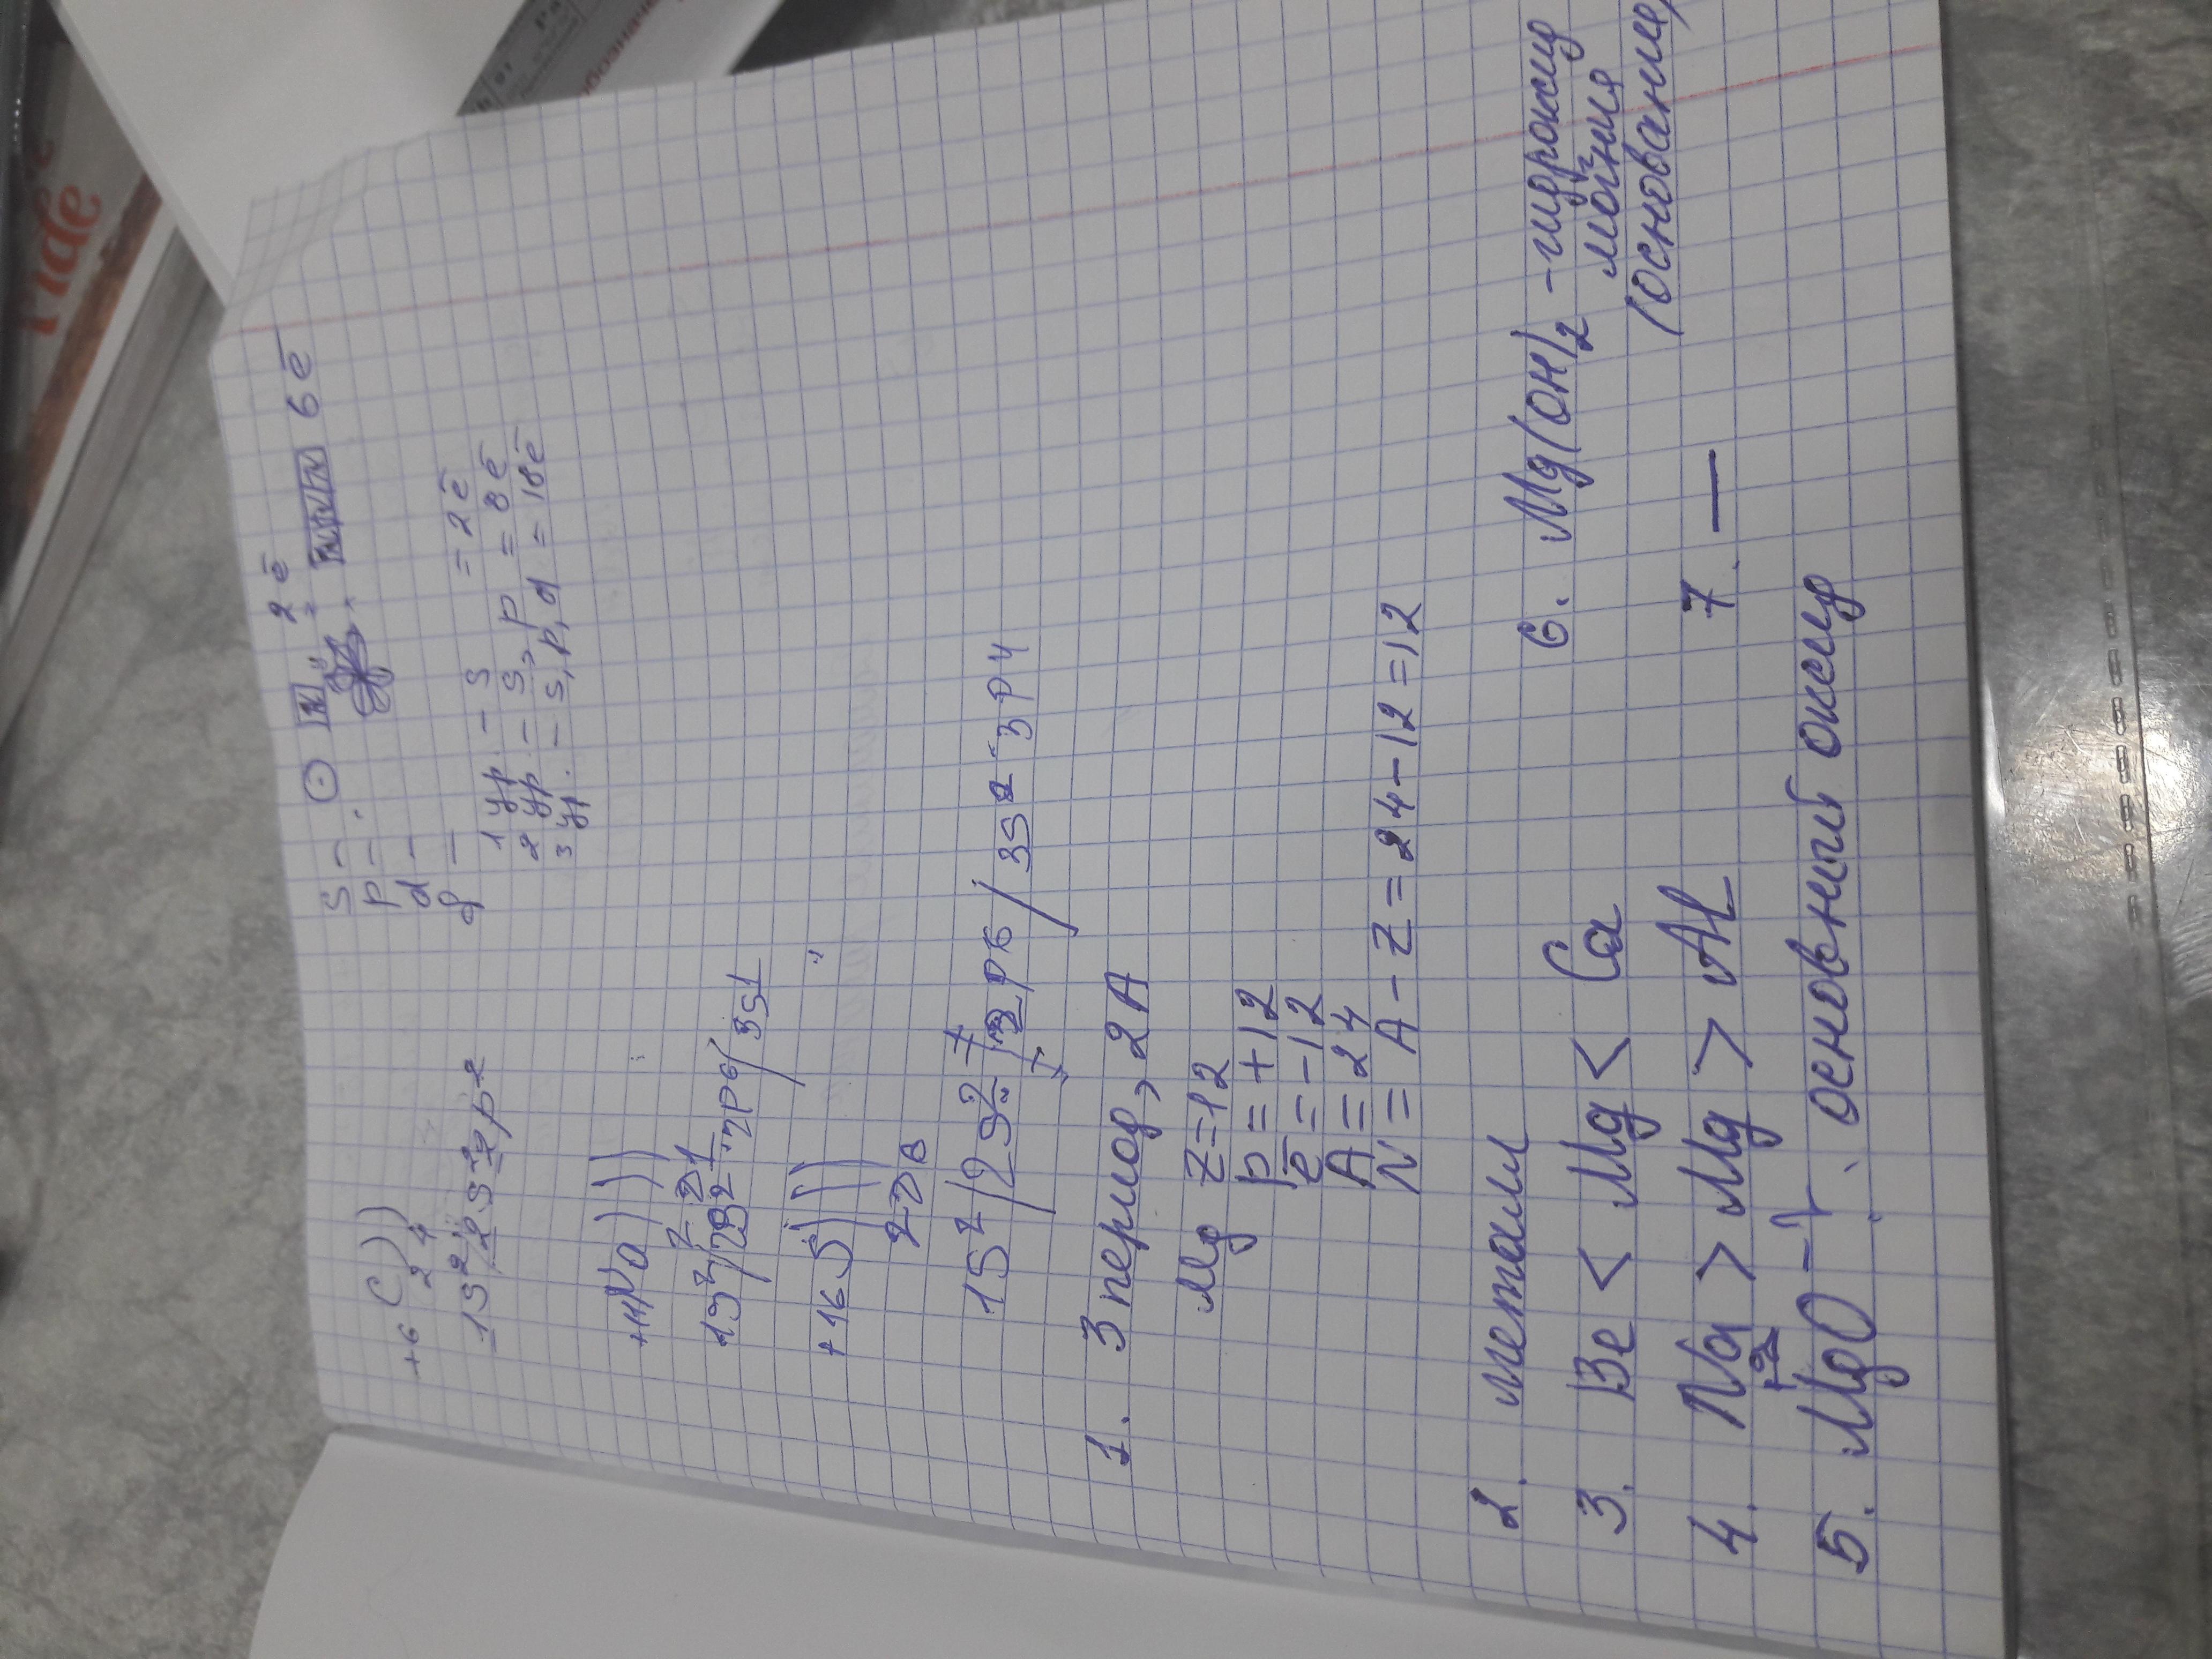 +6 C ))
2 4
1s² 2s² 2p²
+11Na )))
2 8 1
1s² / 2s² 2p6 / 3s1
+16 S )))
2 8
1s² / 2s² 2p6 / 3s2 3p4
s - 2ē
p - 6ē
d -
f -
1 ур - s = 2ē
2 ур - s, p = 8ē
3 ур. - s, p, d = 18ē
1. 3 период, 2 А
Mg Z=12
p = +12
ē = -12
A = 24
N = A - Z = 24 - 12 = 12
2. металл
3. Be < Mg < Ca
4. Na > Mg > Al
5. MgO - основний оксид
6. Mg(OH)2 - гидроксид
магния
(основание)
7. —